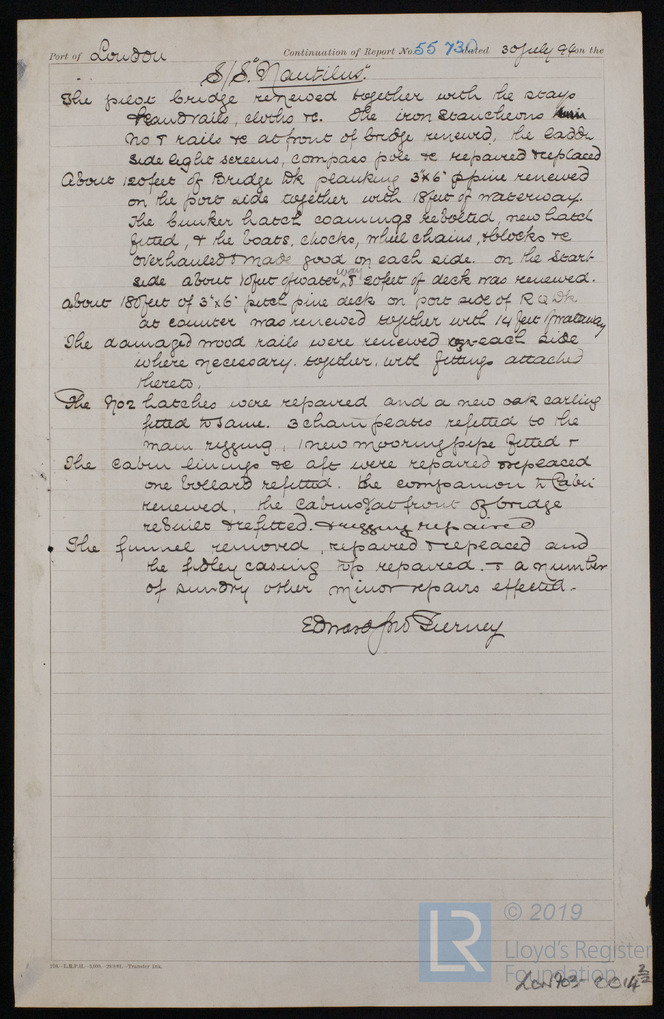 Port of London Continuation of Report No. 55730 dated 30 July 96 on the
S/S "Nautilus".
The pilot bridge renewed together with the stays
handrails, cloths &c. The iron stancheons
No & rails &c at front of bridge renewed, the ladder
side light screens, compass pole &c repaired & replaced
About 120 feet of Bridge Dk planking 3"x6" p pine renewed
on the port side together with 18 feet of waterway.
The bunker hatch coamings rebolted, new hatch
fitted, & the boats, chocks, wheel chains, & blocks &c
overhauled & made good on each side. on the Starb
side about 10 feet of waterway & 20 feet of deck was renewed.
About 180 feet of 3"x6" pitch pine deck on port side of R Q Dk
at counter was renewed together with 14 feet of waterway
The damaged wood rails were renewed on each side
where necessary. together. with fittings attached
thereto.
The No 2 hatches were repaired and a new oak carling
fitted to same. 3 chain plates refitted to the
main rigging, 1 new mooring pipe fitted &
The cabin linings &c aft were repaired & replaced
one bollard refitted. the companion to Cabin
renewed, the cabins at front of bridge
rebuilt & refitted. & rigging repaired
The funnel removed, repaired & replaced and
the fidley casing top repaired. & a number
of sundry other minor repairs effected.
Edward Jno Tierney
LR © 2019
Lloyd's Register
Foundation